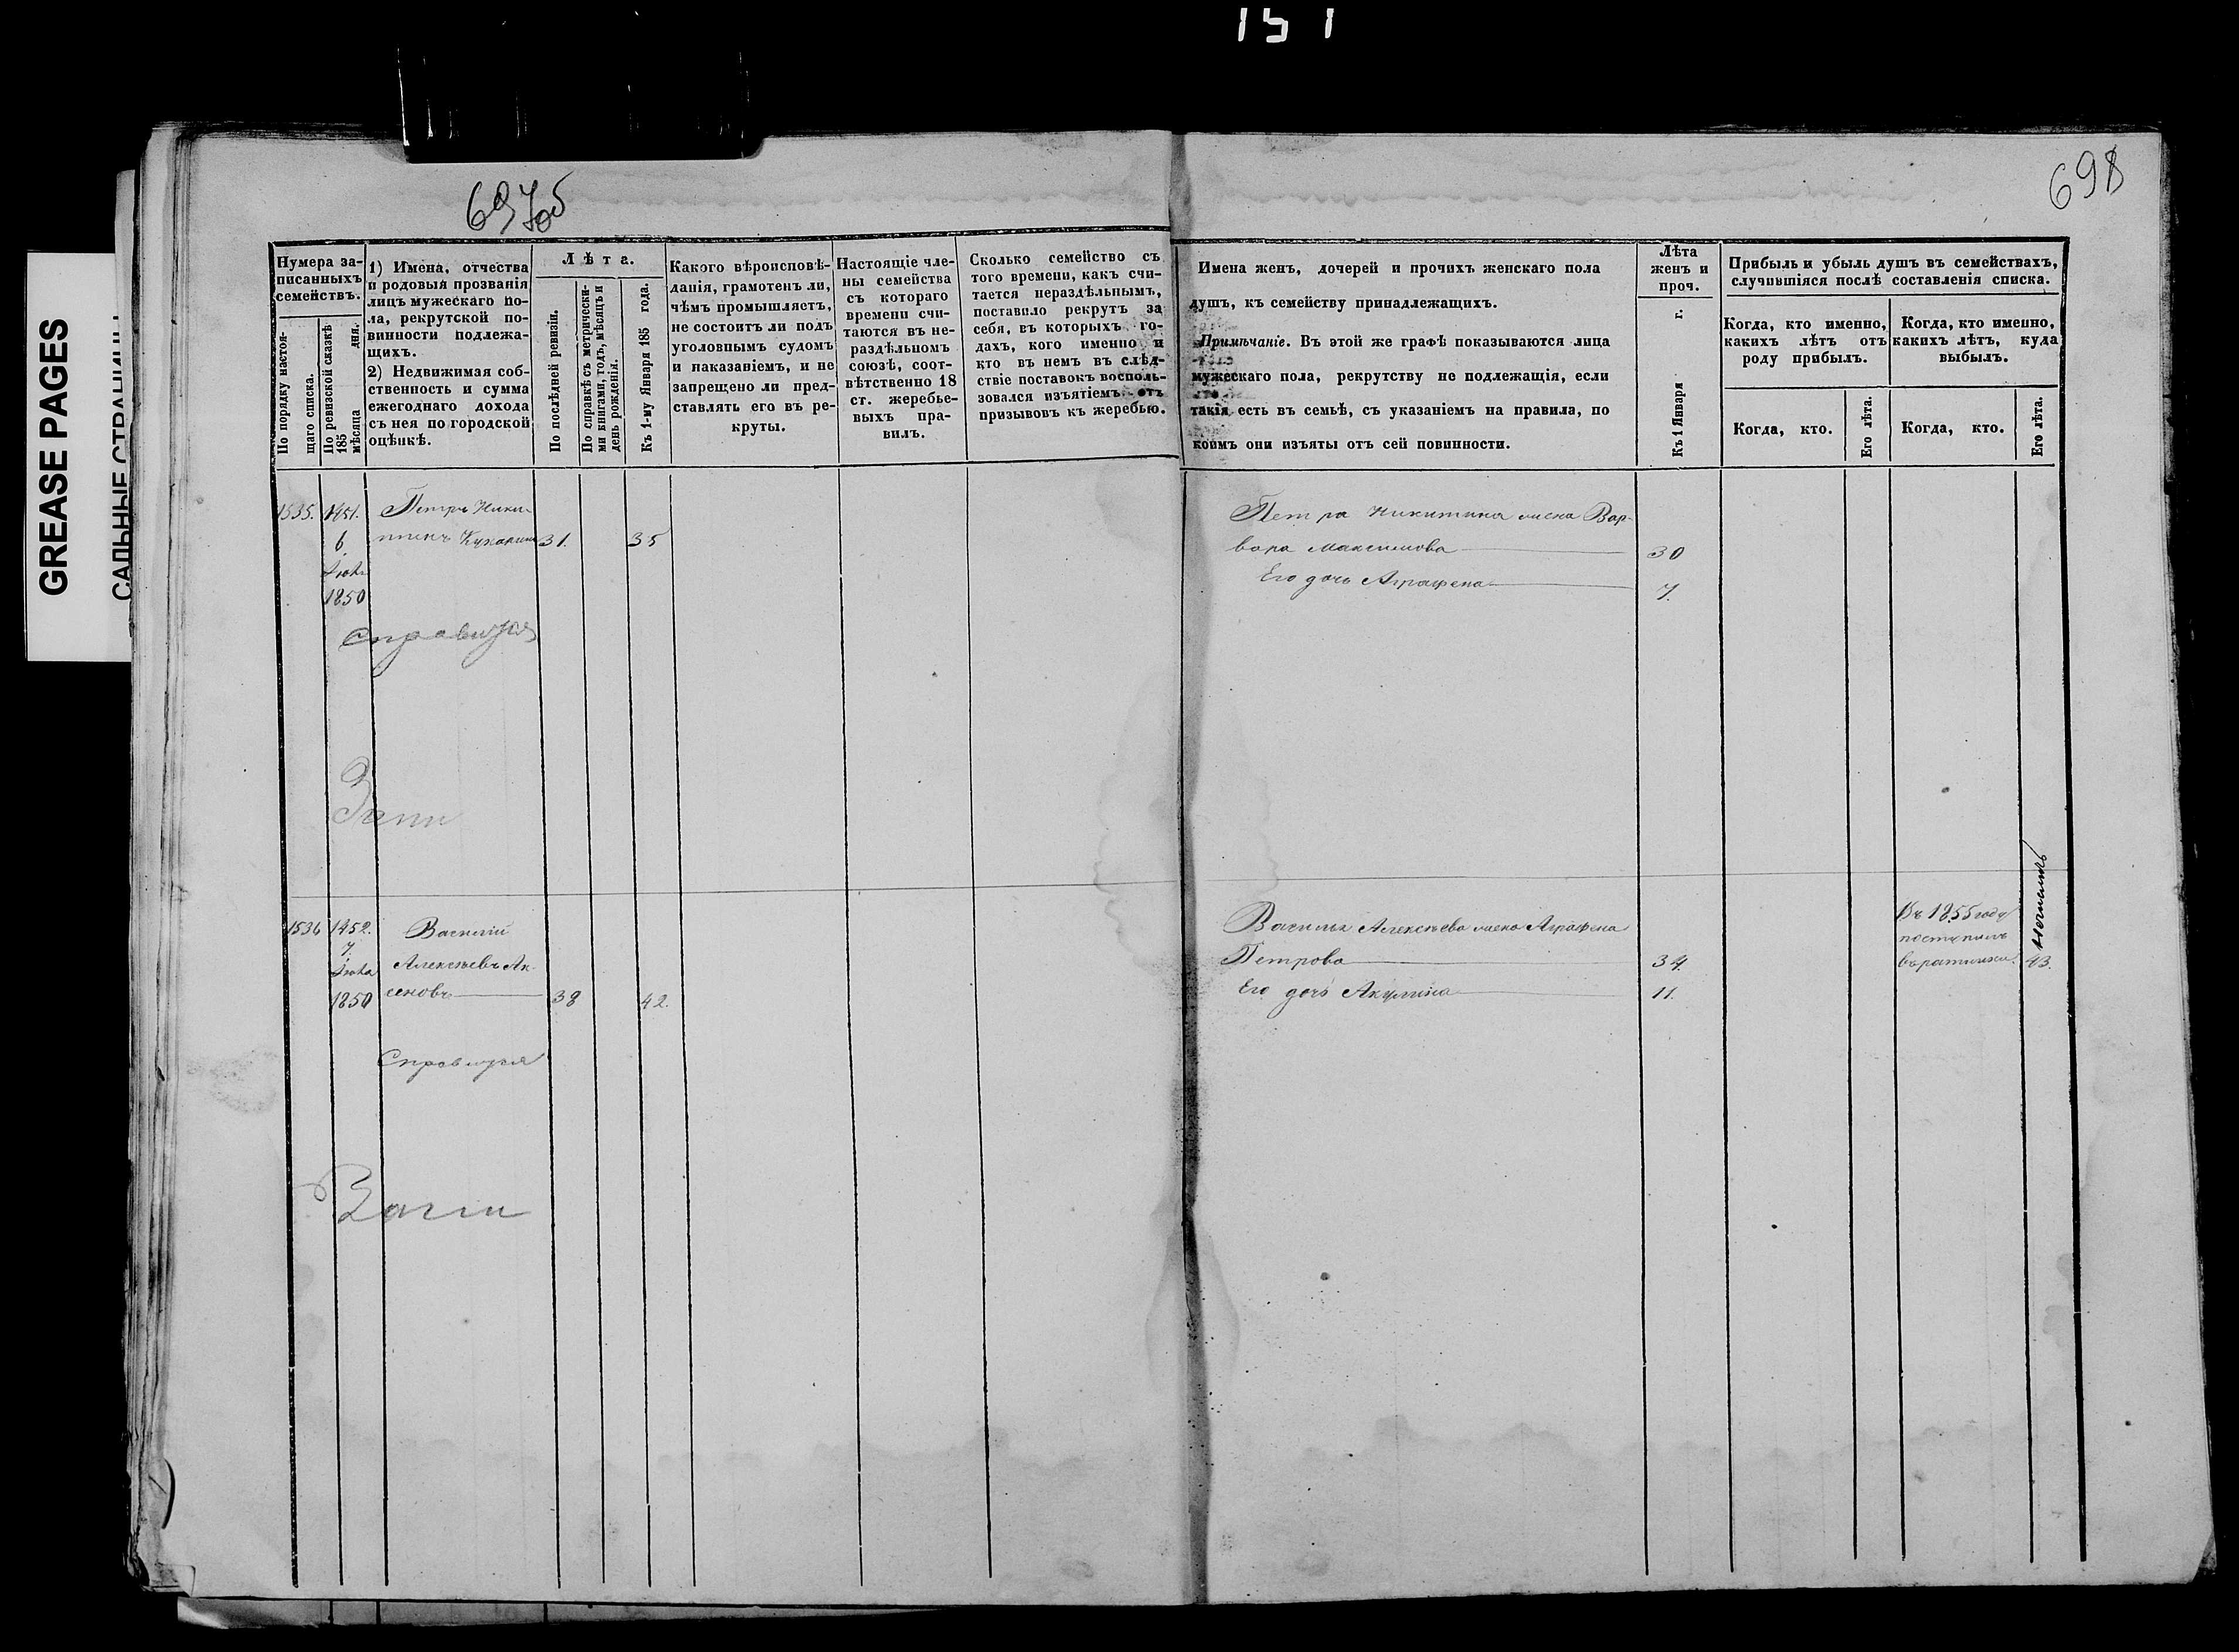 151
GREASE PAGES
САЛЬНЫЕ СТРАНИЦЫ
697об
698
Нумера за-
писанныхъ
семействъ.
По порядку настоя-
щаго списка.
По ревизской сказкѣ
185
мѣсяца дня.
1) Имена, отчества
и родовыя прозванія
лицъ мужескаго по-
ла, рекрутской по-
винности подлежа-
щихъ.
2) Недвижимая соб-
ственность и сумма
ежегоднаго дохода
съ нея по городской
оцѣнкѣ.
Лѣта.
По послѣдней ревизіи.
По справкѣ съ метрически-
ми книгами, годъ, мѣсяцъ и
день рожденія.
Къ 1-му Января 185 года.
Какого вѣроисповѣ-
данія, грамотенъ ли,
чѣмъ промышляетъ,
не состоитъ ли подъ
уголовнымъ судомъ
и наказаніемъ, и не
запрещено ли пред-
ставлять его въ ре-
круты.
Настоящіе чле-
ны семейства
съ котораго
времени счи-
таются въ не-
раздѣльномъ
союзѣ, соот-
вѣтственно 18
ст. жеребье-
выхъ пра-
вилъ.
Сколько семейство съ
того времени, какъ счи-
тается нераздѣльнымъ,
поставило рекрутъ за
себя, въ которыхъ го-
дахъ, кого именно и
кто въ немъ въ слѣд-
ствіе поставокъ восполь-
зовался изъятіемъ отъ
призывовъ къ жеребью.
Имена женъ, дочерей и прочихъ женскаго пола
душъ, къ семейству принадлежащихъ.
Примѣчаніе. Въ этой же графѣ показываются лица
мужескаго пола, рекрутству не подлежащія, если
такія есть въ семьѣ, съ указаніемъ на правила, по
коимъ они изъяты отъ сей повинности.
Лѣта
женъ и
проч.
Къ 1 Января г.
Прибыль и убыль душъ въ семействахъ,
случившіяся послѣ составленія списка.
Когда, кто именно,
какихъ лѣтъ отъ
роду прибылъ.
Когда, кто именно,
какихъ лѣтъ, куда
выбылъ.
Когда, кто.
Его лѣта.
Когда, кто.
Его лѣта.
1535. 1451. Петръ Ники-
6 тинъ 31. 35
1850
Петра Никитина жена Вар-
вара Максимова 30
Его дочь Аграфена 7.
1536 1452. Василій
7 Алексѣевъ Ак-
1850 сеновъ 38 42.
Василья Алексѣева жена Аграфена
Петрова 34.
Его дочь Акулина 11.
Въ 1855 году
поступилъ
въ ратники. 43.